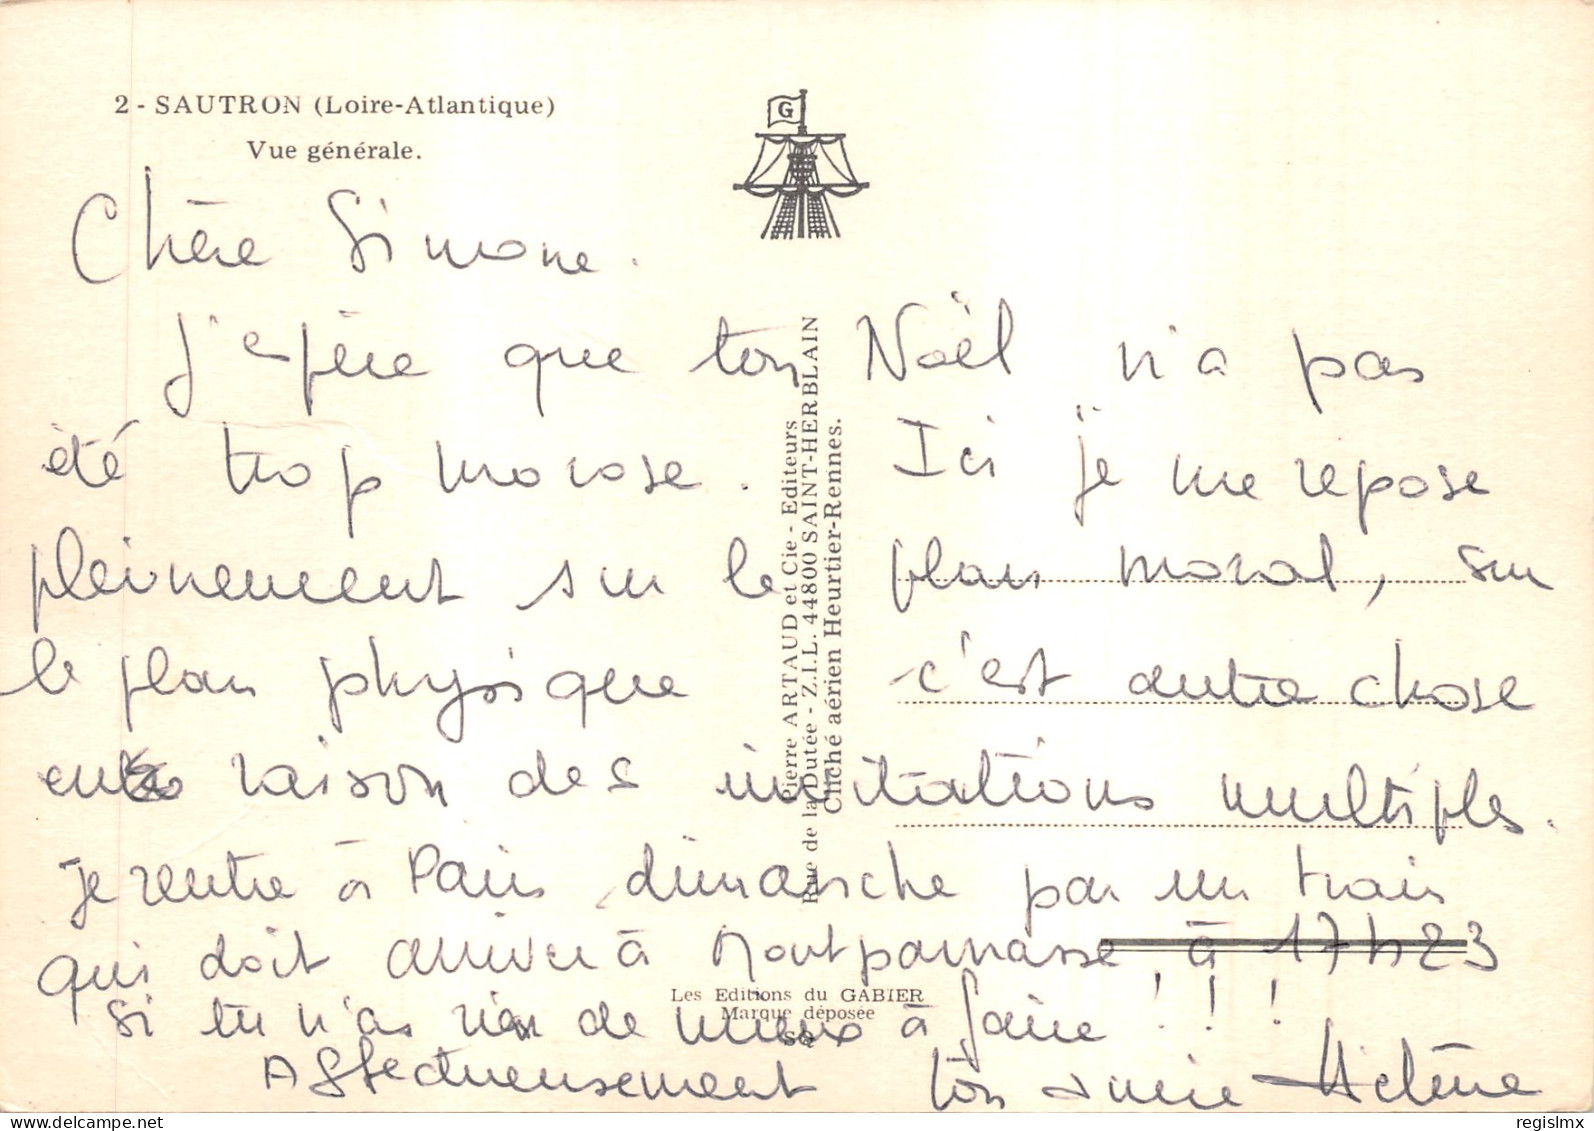 2 - SAUTRON (Loire-Atlantique)
Vue générale.
G
Chère Simone.
J'espère que ton Noël n'a pas
été trop morose. Ici je me repose
pleinement sur le plan moral, sur
le plan physique c'est autre chose
en raison des invitations multiples.
Je rentre à Paris dimanche par un train
qui doit arriver à Montparnasse à 17h23
Si tu n'as rien de mieux à faire !!!
Affectueusement ton amie Hélène
Pierre ARTAUD et Cie - Editeurs
Rue de la Dutée - Z.I.L. 44800 SAINT-HERBLAIN
Cliché aérien Heurtier-Rennes.
Les Editions du GABIER
Marque déposée
regislmx